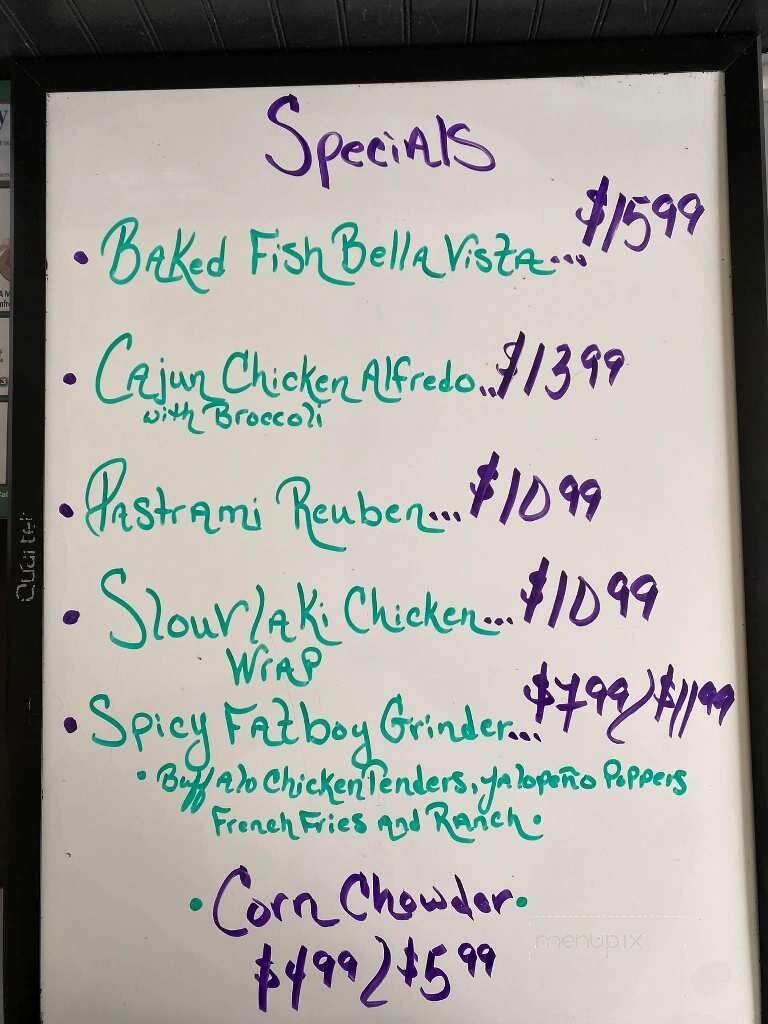 Specials
• Baked Fish Bella Vista... $15 99
• Cajun Chicken Alfredo... $13 99
with Broccoli
• Pastrami Reuben... $10 99
• Slouvlaki Chicken... $10 99
Wrap
• Spicy Fatboy Grinder... $7 99 / $11 99
• Buffalo Chicken Tenders, Jalopeño Poppers
French Fries and Ranch •
• Corn Chowder •
$4 99 / $5 99
menupix
Quartet